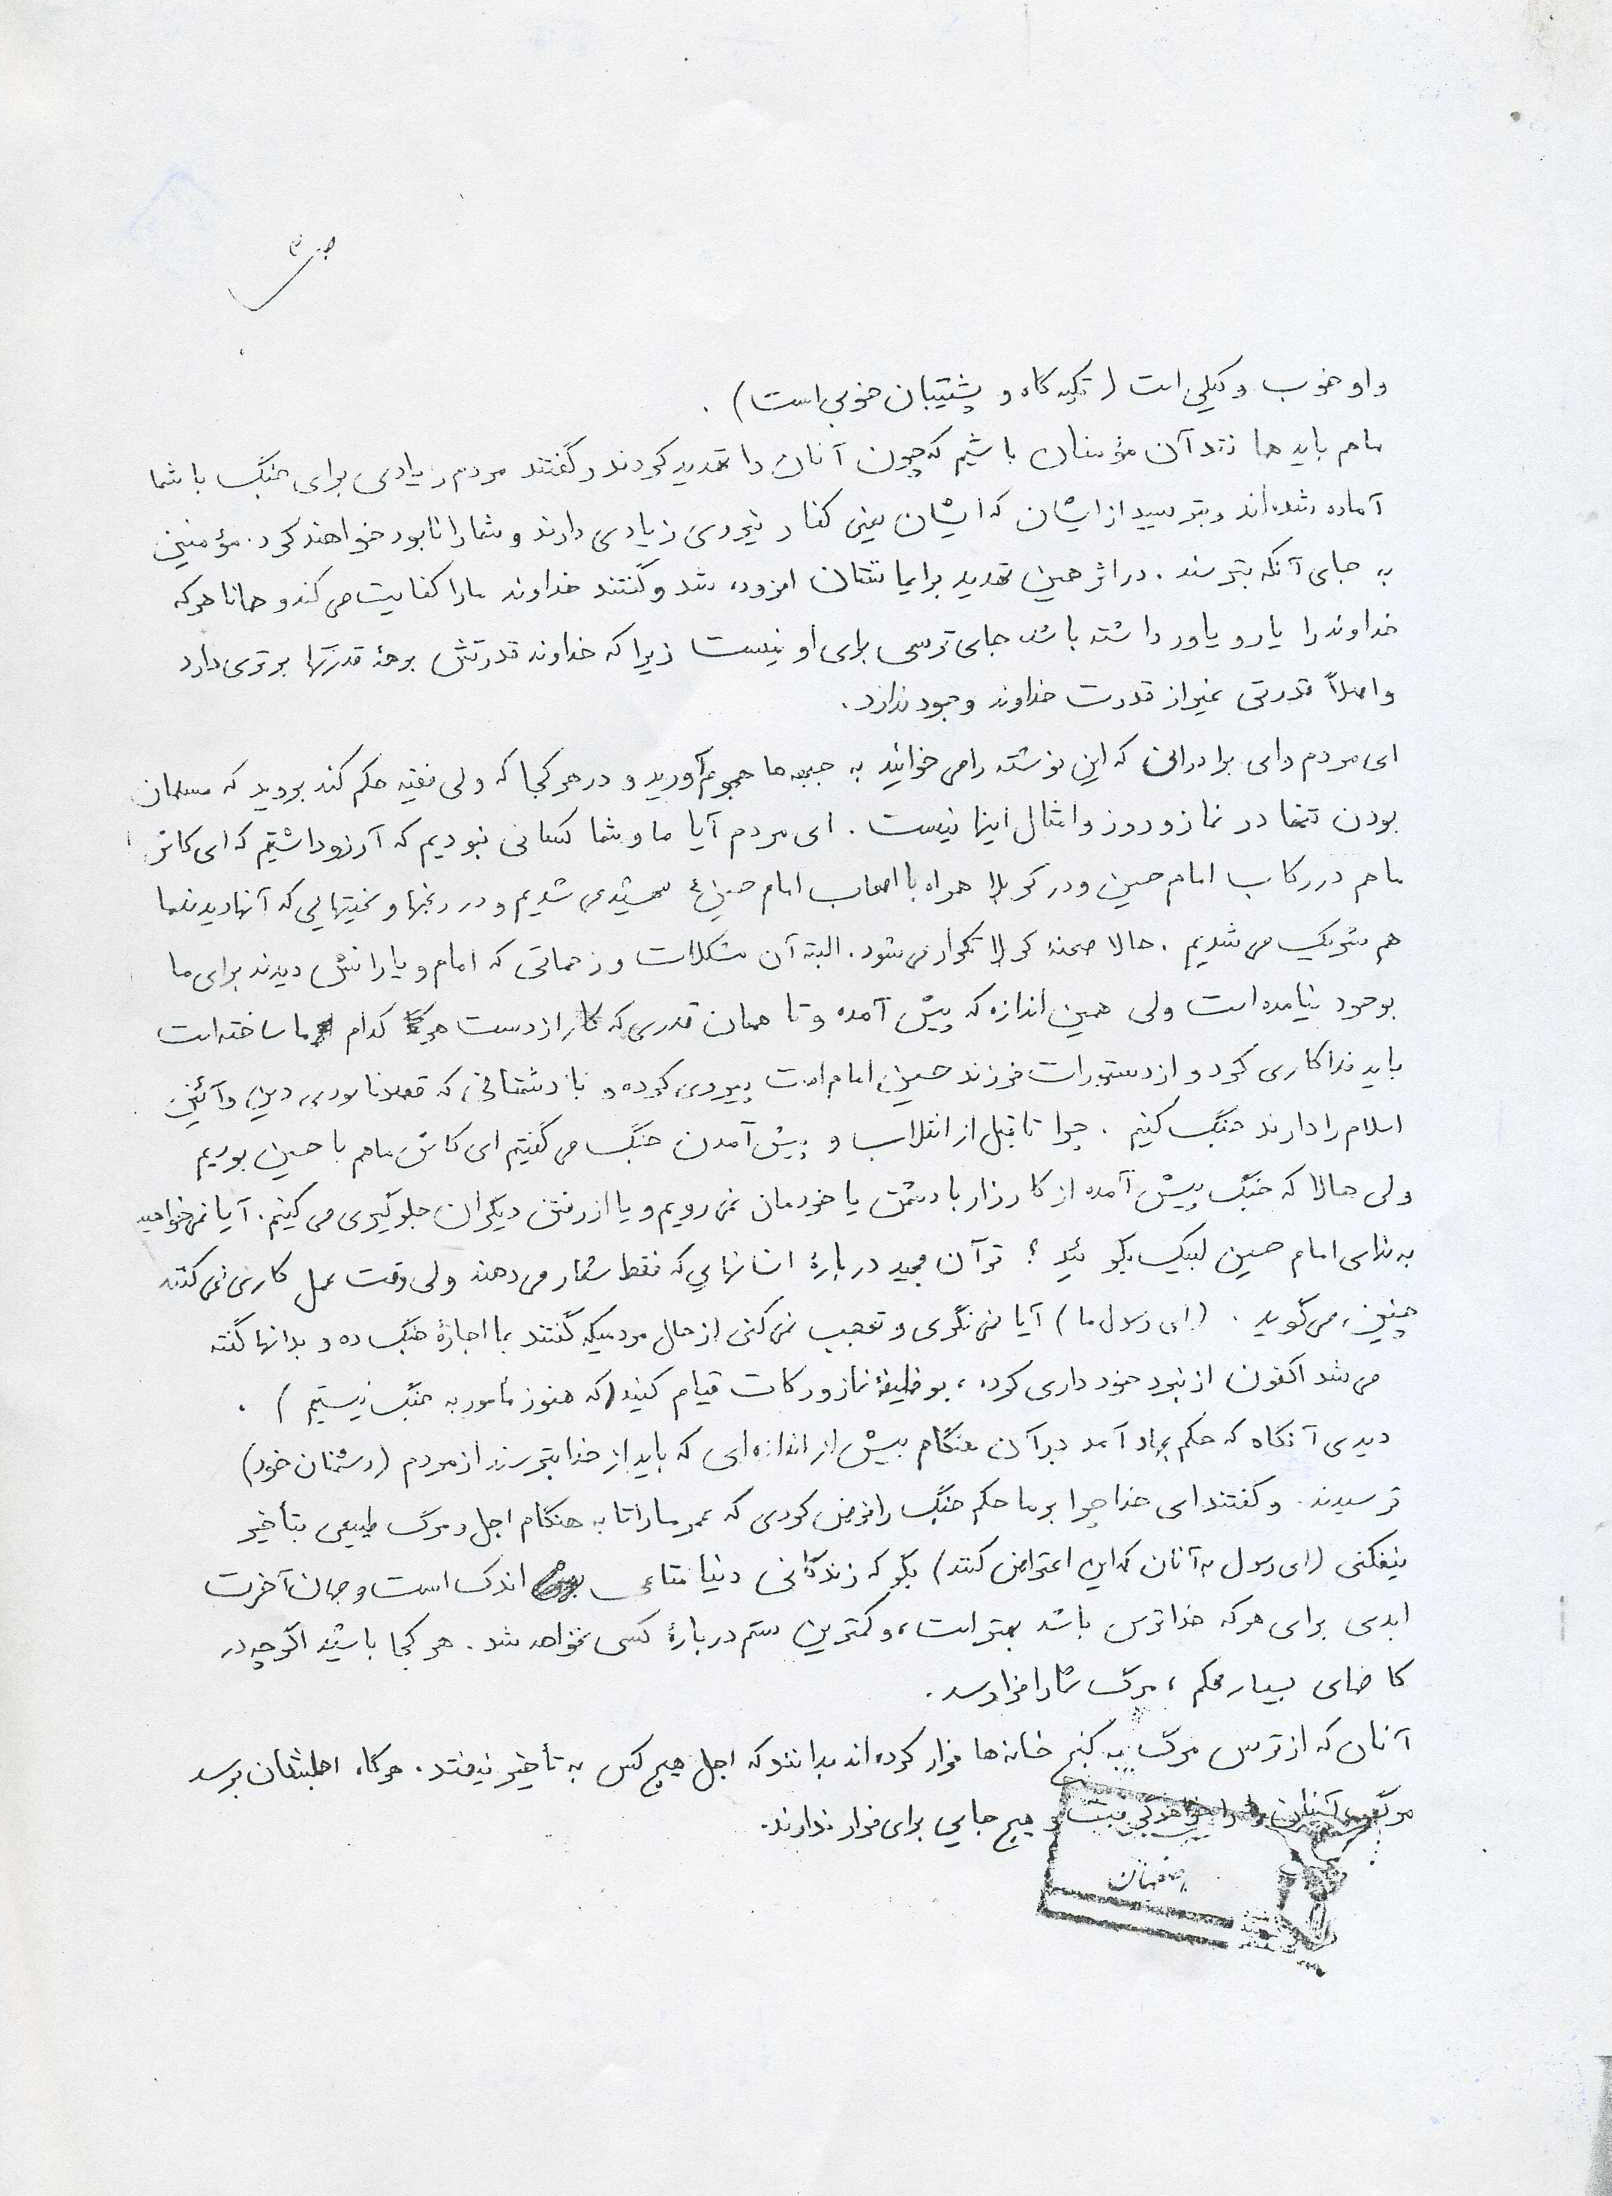 و او خوب وکیلی است (تکیه گاه و پشتیبان خوبی است) .
ما هم باید همانند آن مؤمنان باشیم که چون آنان را تهدید کردند و گفتند مردم زیادی برای جنگ با شما
آماده شده‌اند و بترسید از ایشان که ایشان یعنی کفار نیروی زیادی دارند و شما را نابود خواهند کرد . مؤمنین
به جای آنکه بترسند . در اثر همین تهدید بر ایمانشان افزوده شد و گفتند خداوند ما را کفایت می کند و همانا هر که
خداوند را یار و یاور داشته باشد جای ترسی برای او نیست زیرا که خداوند قدرتش بر همهٔ قدرتها برتری دارد
و اصلاً قدرتی غیر از قدرت خداوند وجود ندارد .
ای مردم و ای برادرانی که این نوشته را می خوانید به جبهه ها هجوم آورید و در هر کجا که ولی فقیه حکم کند بروید که مسلمان
بودن تنها در نماز و روزه و امثال اینها نیست . ای مردم آیا ما و شما کسانی نبودیم که آرزو داشتیم که ای کاش
ما هم در رکاب امام حسین و در کربلا همراه با اصحاب امام حسین ع شهید می شدیم و در رنجها و سختیهایی که آنها دیدند ما
هم شریک می شدیم . حالا صحنهٔ کربلا تکرار می شود . البته آن مشکلات و زحماتی که امام و یارانش دیدند برای ما
بوجود نیامده است ولی همین اندازه که پیش آمده و تا همان قدری که کار از دست هر کدام ما ساخته است
باید فداکاری کرد و از دستورات فرزند حسین، امام امت پیروی کرده و با دشمنانی که قصد نابودی دین و آئین
اسلام را دارند جنگ کنیم . چرا تا قبل از انقلاب و پیش آمدن جنگ می گفتیم ای کاش ما هم با حسین بودیم
ولی حالا که جنگ پیش آمده از کارزار با دشمن یا خودمان نمی رویم و یا از رفتن دیگران جلوگیری می کنیم . آیا نمی خواهید
به ندای امام حسین لبیک بگوئید ؟ قرآن مجید دربارهٔ انسانهایی که فقط شعار می دهند ولی وقت عمل کاری نمی کنند
چنین می گوید . (ای رسول ما) آیا نمی نگری و تعجب نمی کنی از حال مردمیکه گفتند بما اجازهٔ جنگ ده و بدانها گفته
می شد اکنون از نبرد خودداری کرده ، بوظیفهٔ نماز و زکات قیام کنید (که هنوز مأمور به جنگ نیستیم) .
دیدی آنگاه که حکم جهاد آمد در آن هنگام بیش از اندازه ای که باید از خدا بترسند از مردم (دشمنان خود)
ترسیدند . و گفتند ای خدا چرا بر ما حکم جنگ را فرض کردی که عمر ما را تا به هنگام اجل و مرگ طبیعی بتأخیر
نیفکنی (ای رسول به آنان که این اعتراض کنند) بگو که زندگانی دنیا متاعی اندک است و جهان آخرت
ابدی برای هر که خداترس باشد بهتر است ، و کمترین ستم دربارهٔ کسی نخواهد شد . هر کجا باشید اگر چه در
کاخهای بسیار محکم ، مرگ شما را فرا رسد .
آنان که از ترس مرگ به کنج خانه ها فرار کرده اند بدانند که اجل هیچ کس به تأخیر نیفتد . هرگاه اجلشان برسد
مرگ آنان را فرا خواهد گرفت و هیچ جایی برای فرار ندارند .
اصفهان